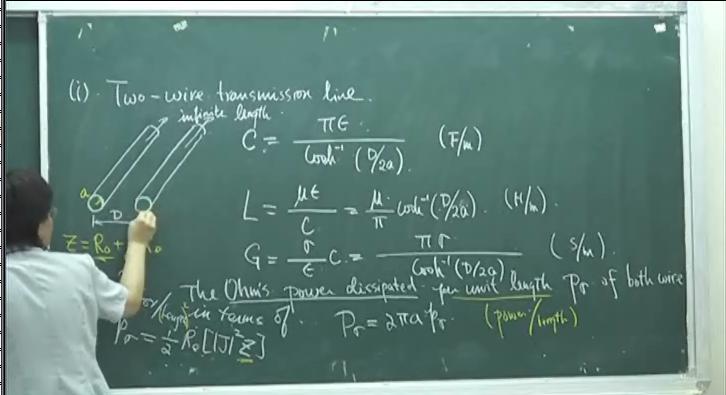 (i). Two-wire transmission line.
infinite length.
C = πε / cosh⁻¹ (D/2a) (F/m)
a
D
L = με / C = μ/π cosh⁻¹(D/2a). (H/m).
Z = R₀ +
G = σ/ε C = πσ / cosh⁻¹(D/2a) (S/m).
The Ohm's power dissipated per unit length Pσ of both wire
in terms of. Pσ = 2πa·pσ. (power/length)
pσ = 1/2 Re[|J|² Z]